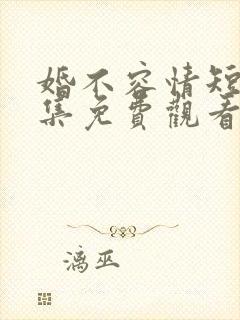 婚不容情短
集免費觀看
漓巫